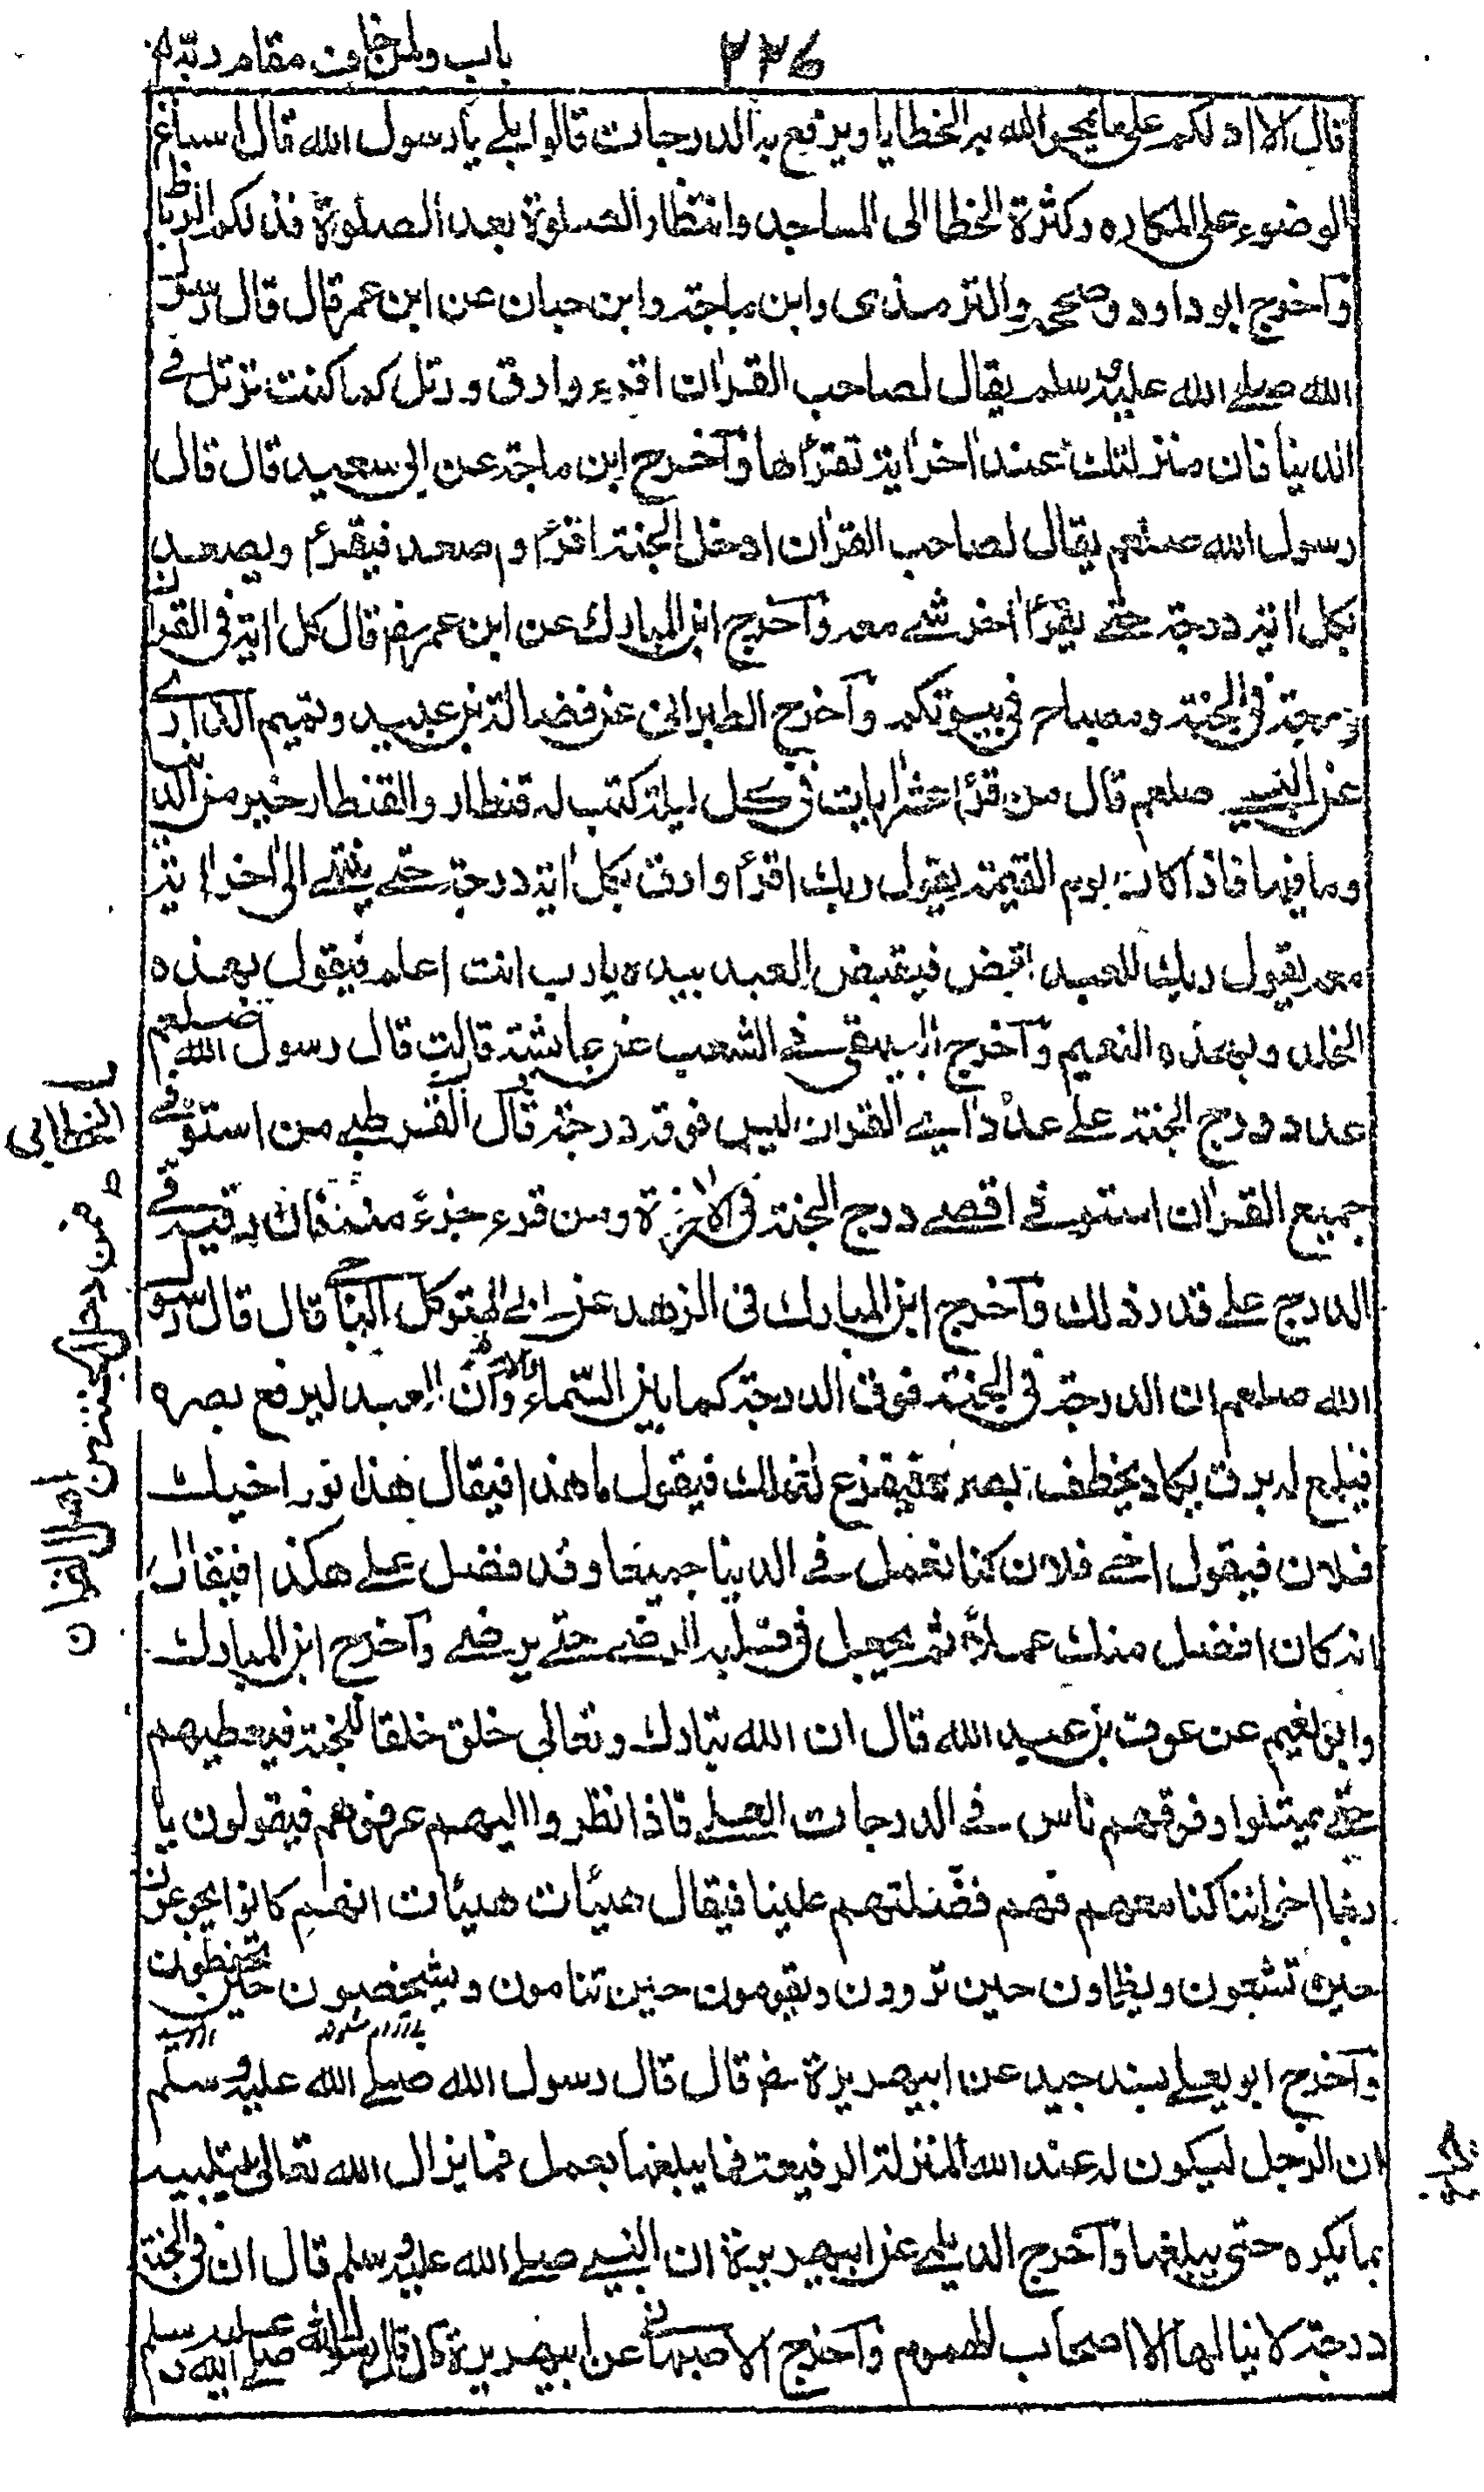 باب ولمن خاف مقام ربه
٢٣٦
قال الا ادلكم على ما يمحو الله به الخطايا ويرفع به الدرجات قالوا بلى يا رسول الله قال اسباغ
الوضوء على المكاره وكثرة الخطا الى المساجد وانتظار الصلوة بعد الصلوة فذلكم الرباط
وآخرج ابو داود وصححه والترمذي وابن ماجة وابن حبان عن ابن عمر قال قال رسول
الله صلے الله عليه وسلم يقال لصاحب القران اقرء وارق ورتل كما كنت ترتل في
الدنيا فان منزلتك عند اخر اية تقرأها وآخرج ابن ماجة عن ابي سعيد قال قال
رسول الله صلعم يقال لصاحب القران ادخل الجنة اقرأ واصعد فيقرأ ويصعد
بكل اية درجة حتے يقرأ اخر شے معه وآخرج ابن المبارك عن ابن عمر رض قال كل اية في القران
درجة في الجنة ومصباح في بيوتكم وآخرج الطبراني عن فضالة بن عبيد وتميم الدارے
عن النبي صلعم قال من قرأ عشر ايات في كل ليلة كتب له قنطار والقنطار خير من الدنيا
وما فيها فاذا كان يوم القيمة يقول ربك اقرأ وارق بكل اية درجة حتے ينتهے الى اخر اية
معه يقول ربك للعبد اقبض فيقبض العبد بيده يا رب انت اعلم فيقول بهذه
الخلد وبهذه النعيم وآخرج البيهقي في الشعب عن عايشة قالت قال رسول الله صلعم
عدد درج الجنة علے عدد آي القران ليس فوقه درجة قال القرطبے من استوفے
جميع القران استوفے اقصے درج الجنة في الاخرة ومن قرء جزء منه فان رقيه في
الدرج علے قدر ذلك وآخرج ابن المبارك في الزهد عن ابي المتوكل الناجے قال قال رسول
الله صلعم ان الدرجة في الجنة فوق الدرجة كما بين السماء والارض وان العبد ليرفع بصره
فيلمع له برق يكاد يخطف بصره فيفزع لذلك فيقول ما هذا فيقال هذا نور اخيك
فلان فيقول اخے فلان كنا نعمل في الدنيا جميعا وقد فضل علے هكذا فيقال
انه كان افضل منك عملا ثم يجعل في قلبه الرضے حتے يرضے وآخرج ابن المبارك
وابو نعيم عن عون بن عبد الله قال ان الله تبارك وتعالى خلق خلقا للجنة فيعطيهم
حتے يمتلوا وفوقهم ناس في الدرجات العلے فاذا نظروا اليهم عرفوهم فيقولون يا
ربنا اخواننا كنا معهم فبم فضلتهم علينا فيقال هيئات هيئات انهم كانوا يجوعون
حين تشبعون ويظمأون حين تروون ويقومون حين تنامون ويشخصون حين تخفظون
وآخرج ابو يعلے بسند جيد عن ابيهريرة رض قال قال رسول الله صلے الله عليه وسلم
ان الرجل ليكون له عند الله المنزلة الرفيعة فما يبلغها بعمل فما يزال الله تعالى يبتليه
بما يكره حتى يبلغها وآخرج الديلمے عن ابيهريرة ان النبے صلے الله عليه وسلم قال ان في الجنة
درجة لا ينالها الا اصحاب الهموم وآخرج الاصبهاني عن ابيهريرة قال قال رسول الله صلے الله عليه وسلم
الخطابي
من دخل الجنة من
اهل القران